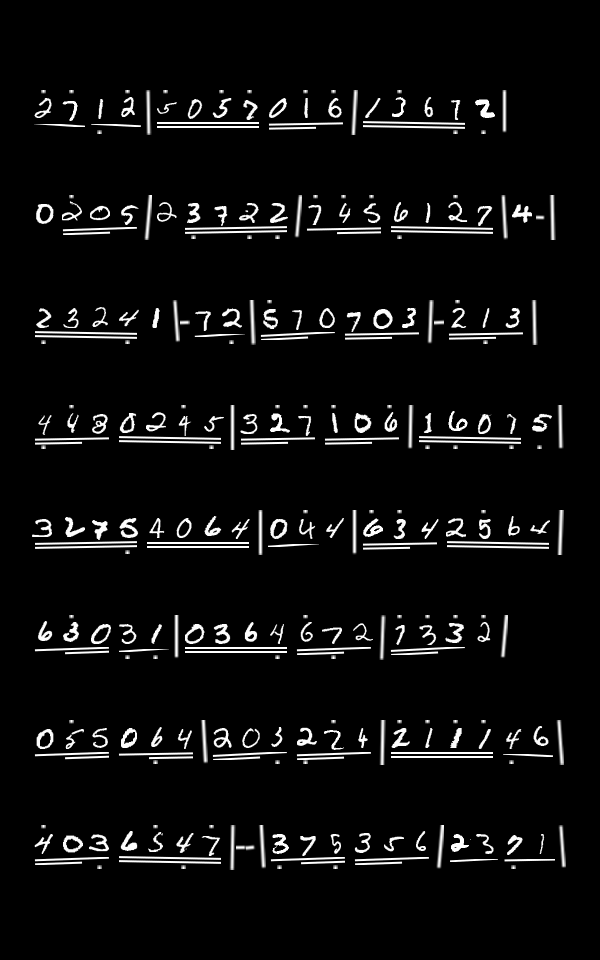 2712|5057016|13672
0205|23722|7456127|4-
23241|-72|570703|-213
4480245|327106|16075
32754064|044|6342564
63031|0364672|1332
055064|203224|211146
4036547|--|375356|2371